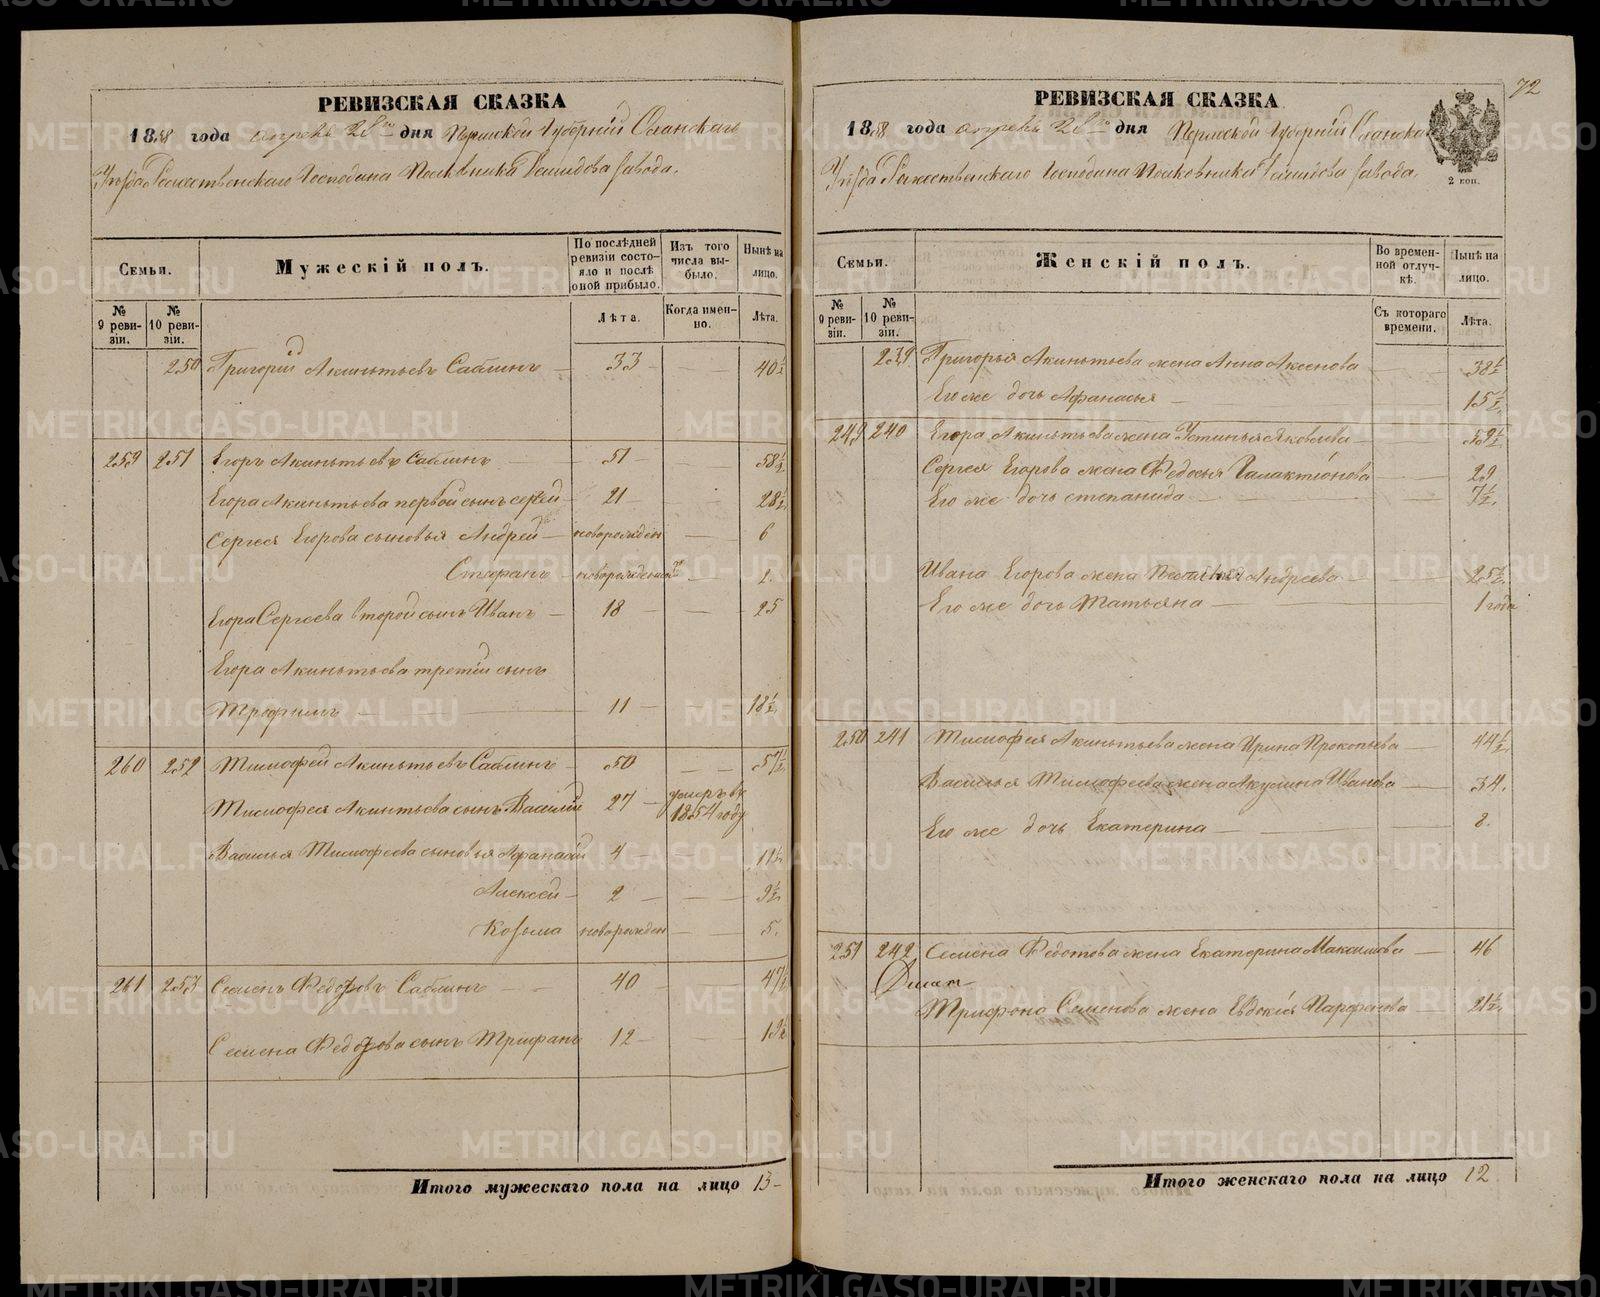 РЕВИЗСКАЯ СКАЗКА
1858 года апреля 28го дня Пермской Губернiи Осинскаго
Уезда Рожественскаго Господина Полковника Демидова завода.
Семьи.
Мужескiй полъ.
По послѣдней ревизiи состояло и послѣ оной прибыло.
Изъ того числа выбыло.
Нынѣ на лицо.
№ 9 ревизiи.
№ 10 ревизiи.
Лѣта.
Когда именно.
Лѣта.
250 Григорiй Акинтьевъ Саблинъ — 33 — 40½
259 251 Егоръ Акинтьевъ Саблинъ — 51 — 58½
Егора Акинтьева первой сынъ Сергей — 21 — 28½
Сергея Егорова сыновья Андрей — новорожден — 6
Стефанъ — новорожденъ — 2.
Егора Сергеева второй сынъ Иванъ — 18 — 25
Егора Акинтьева третiй сынъ
Трофимъ — 11 — 18½
260 252 Тимофей Акинтьевъ Саблинъ — 50 — 57½
Тимофея Акинтьева сынъ Василiй 27 — умеръ въ 1854 году
Василья Тимофеева сыновья Афанасiй 4 — 11½
Алексей — 2 — 9½
Козьма новорожден — 5.
261 253 Семенъ Федотовъ Саблинъ — 40 — 47½
Семена Федотова сынъ Трифанъ 12 — 19½
Итого мужескаго пола на лицо 13 -
72
РЕВИЗСКАЯ СКАЗКА
1858 года апреля 28го дня Пермской Губернiи Осинска
Уезда Рожественскаго Господина Полковника Демидова завода.
2 коп.
Семьи.
Женскiй полъ.
Во временной отлучкѣ.
Нынѣ на лицо.
№ 9 ревизiи.
№ 10 ревизiи.
Съ котораго времени.
Лѣта.
239. Григорья Акинтьева жена Анна Аксенова — 38½
Его же дочь Афанасья — 15½
249 240 Егора Акинтьева жена Устинья Яковлева — 59½
Сергея Егорова жена Федосья Галактiонова 29
Его же дочь степанида — 7½.
Ивана Егорова жена Андреева — 25½
Его же дочь Татьяна — 1 года
250 241 Тимофея Акинтьева жена Ирина Прокопьева — 44½
Василья Тимофеева жена Акулина Иванова — 34.
Его же дочь Екатерина — 8.
251 242 Семена Федотова жена Екатерина Максимова — 46
Трифона Семенова жена Евдокiя Парфенова — 21½.
Итого женскаго пола на лицо 12
METRIKI.GASO-URAL.RU